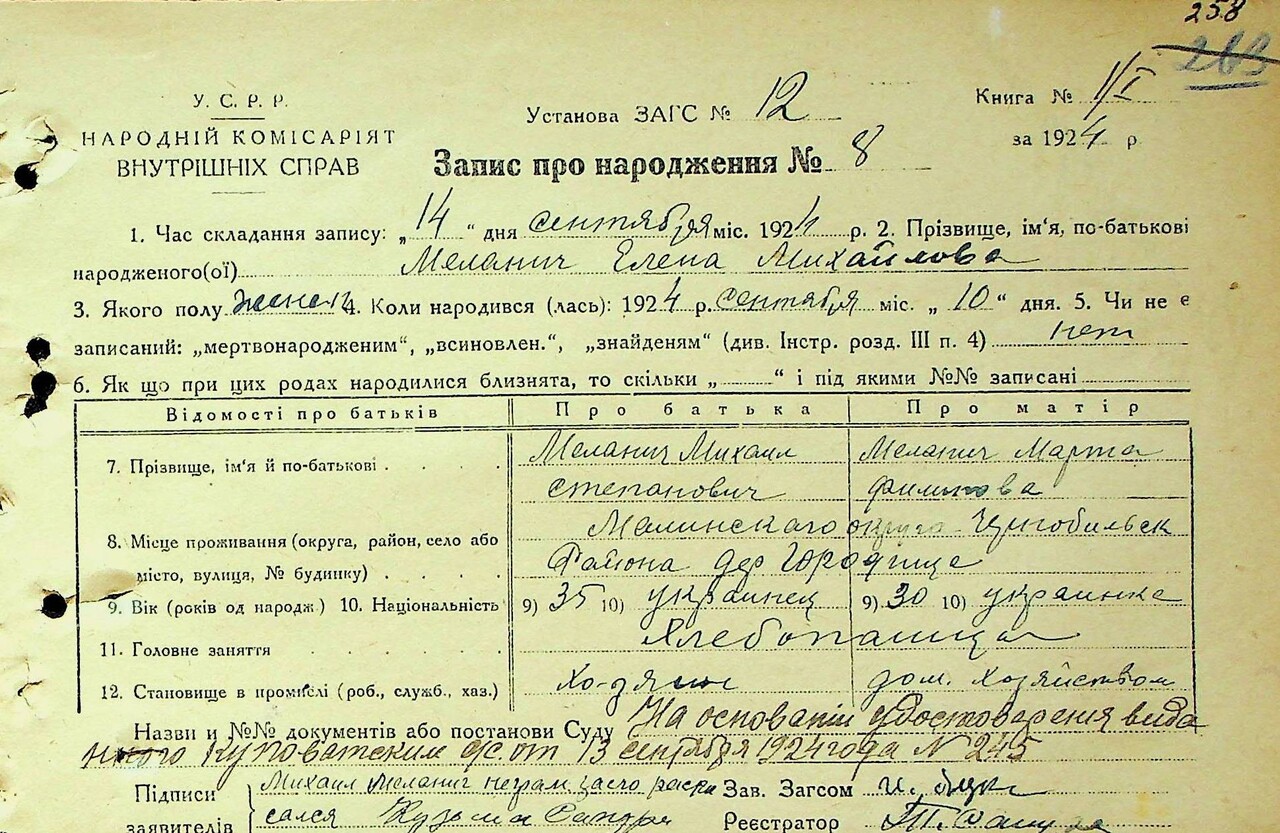 258
У. С. Р. Р.
НАРОДНІЙ КОМІСАРІЯТ
ВНУТРІШНІХ СПРАВ
Установа ЗАГС № 12
Книга № 1/I
за 1924 р.
Запис про народження № 8
1. Час складання запису: „14“ дня сентября міс. 1924 р. 2. Прізвище, ім'я, по-батькові
народженого(ої) Меланич Елена Михайлова
3. Якого полу женск 4. Коли народився (лась): 1924 р. сентября міс. „10“ дня. 5. Чи не є
записаний: „мертвонародженим“, „всиновлен.“, „знайденям“ (див. Інстр. розд. III п. 4) нет
6. Як що при цих родах народилися близнята, то скільки „ “ і під якими №№ записані
Відомості про батьків Про батька Про матір
7. Прізвище, ім'я й по-батькові Меланич Михаил Меланич Марта
Степанович
8. Місце проживання (округа, район, село або Малинскаго округа
місто, вулиця, № будинку) Района дер Городище
9. Вік (років од народж) 10. Національність 9) 35 10) украинец 9) 30 10) украинка
11. Головне заняття Хлебопашца
12. Становище в промислі (роб., служб., хаз.) дом. хозяйством
Назви и №№ документів або постанови Суду На основании удостоверения выда
нного Куповатским с/с. от 13 сентября 1924 года N 245
Підписи Михаил Меланич неграм. за его распи Зав. Загсом
заявителів сался Кузьма Реєстратор